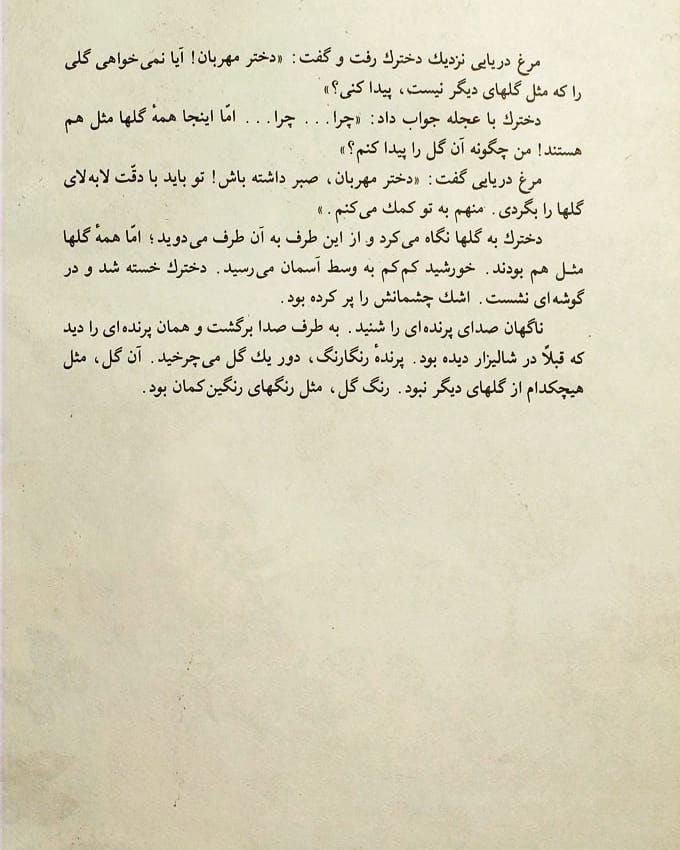 مرغ دریایی نزدیك دخترك رفت و گفت: «دختر مهربان! آیا نمی‌خواهی گلی
را که مثل گلهای دیگر نیست، پیدا کنی؟»
دخترك با عجله جواب داد: «چرا... چرا... امّا اینجا همهٔ گلها مثل هم
هستند! من چگونه آن گل را پیدا کنم؟»
مرغ دریایی گفت: «دختر مهربان، صبر داشته باش! تو باید با دقّت لابه‌لای
گلها را بگردی. منهم به تو کمك می‌کنم.»
دخترك به گلها نگاه می‌کرد و از این طرف به آن طرف می‌دوید؛ امّا همهٔ گلها
مثـل هم بودند. خورشید کم‌کم به وسط آسمان می‌رسید. دخترك خسته شد و در
گوشه‌ای نشست. اشك چشمانش را پر کرده بود.
ناگهان صدای پرنده‌ای را شنید. به طرف صدا برگشت و همان پرنده‌ای را دید
که قبلاً در شالیزار دیده بود. پرندهٔ رنگارنگ، دور یك گل می‌چرخید. آن گل، مثل
هیچکدام از گلهای دیگر نبود. رنگ گل، مثل رنگهای رنگین‌کمان بود.